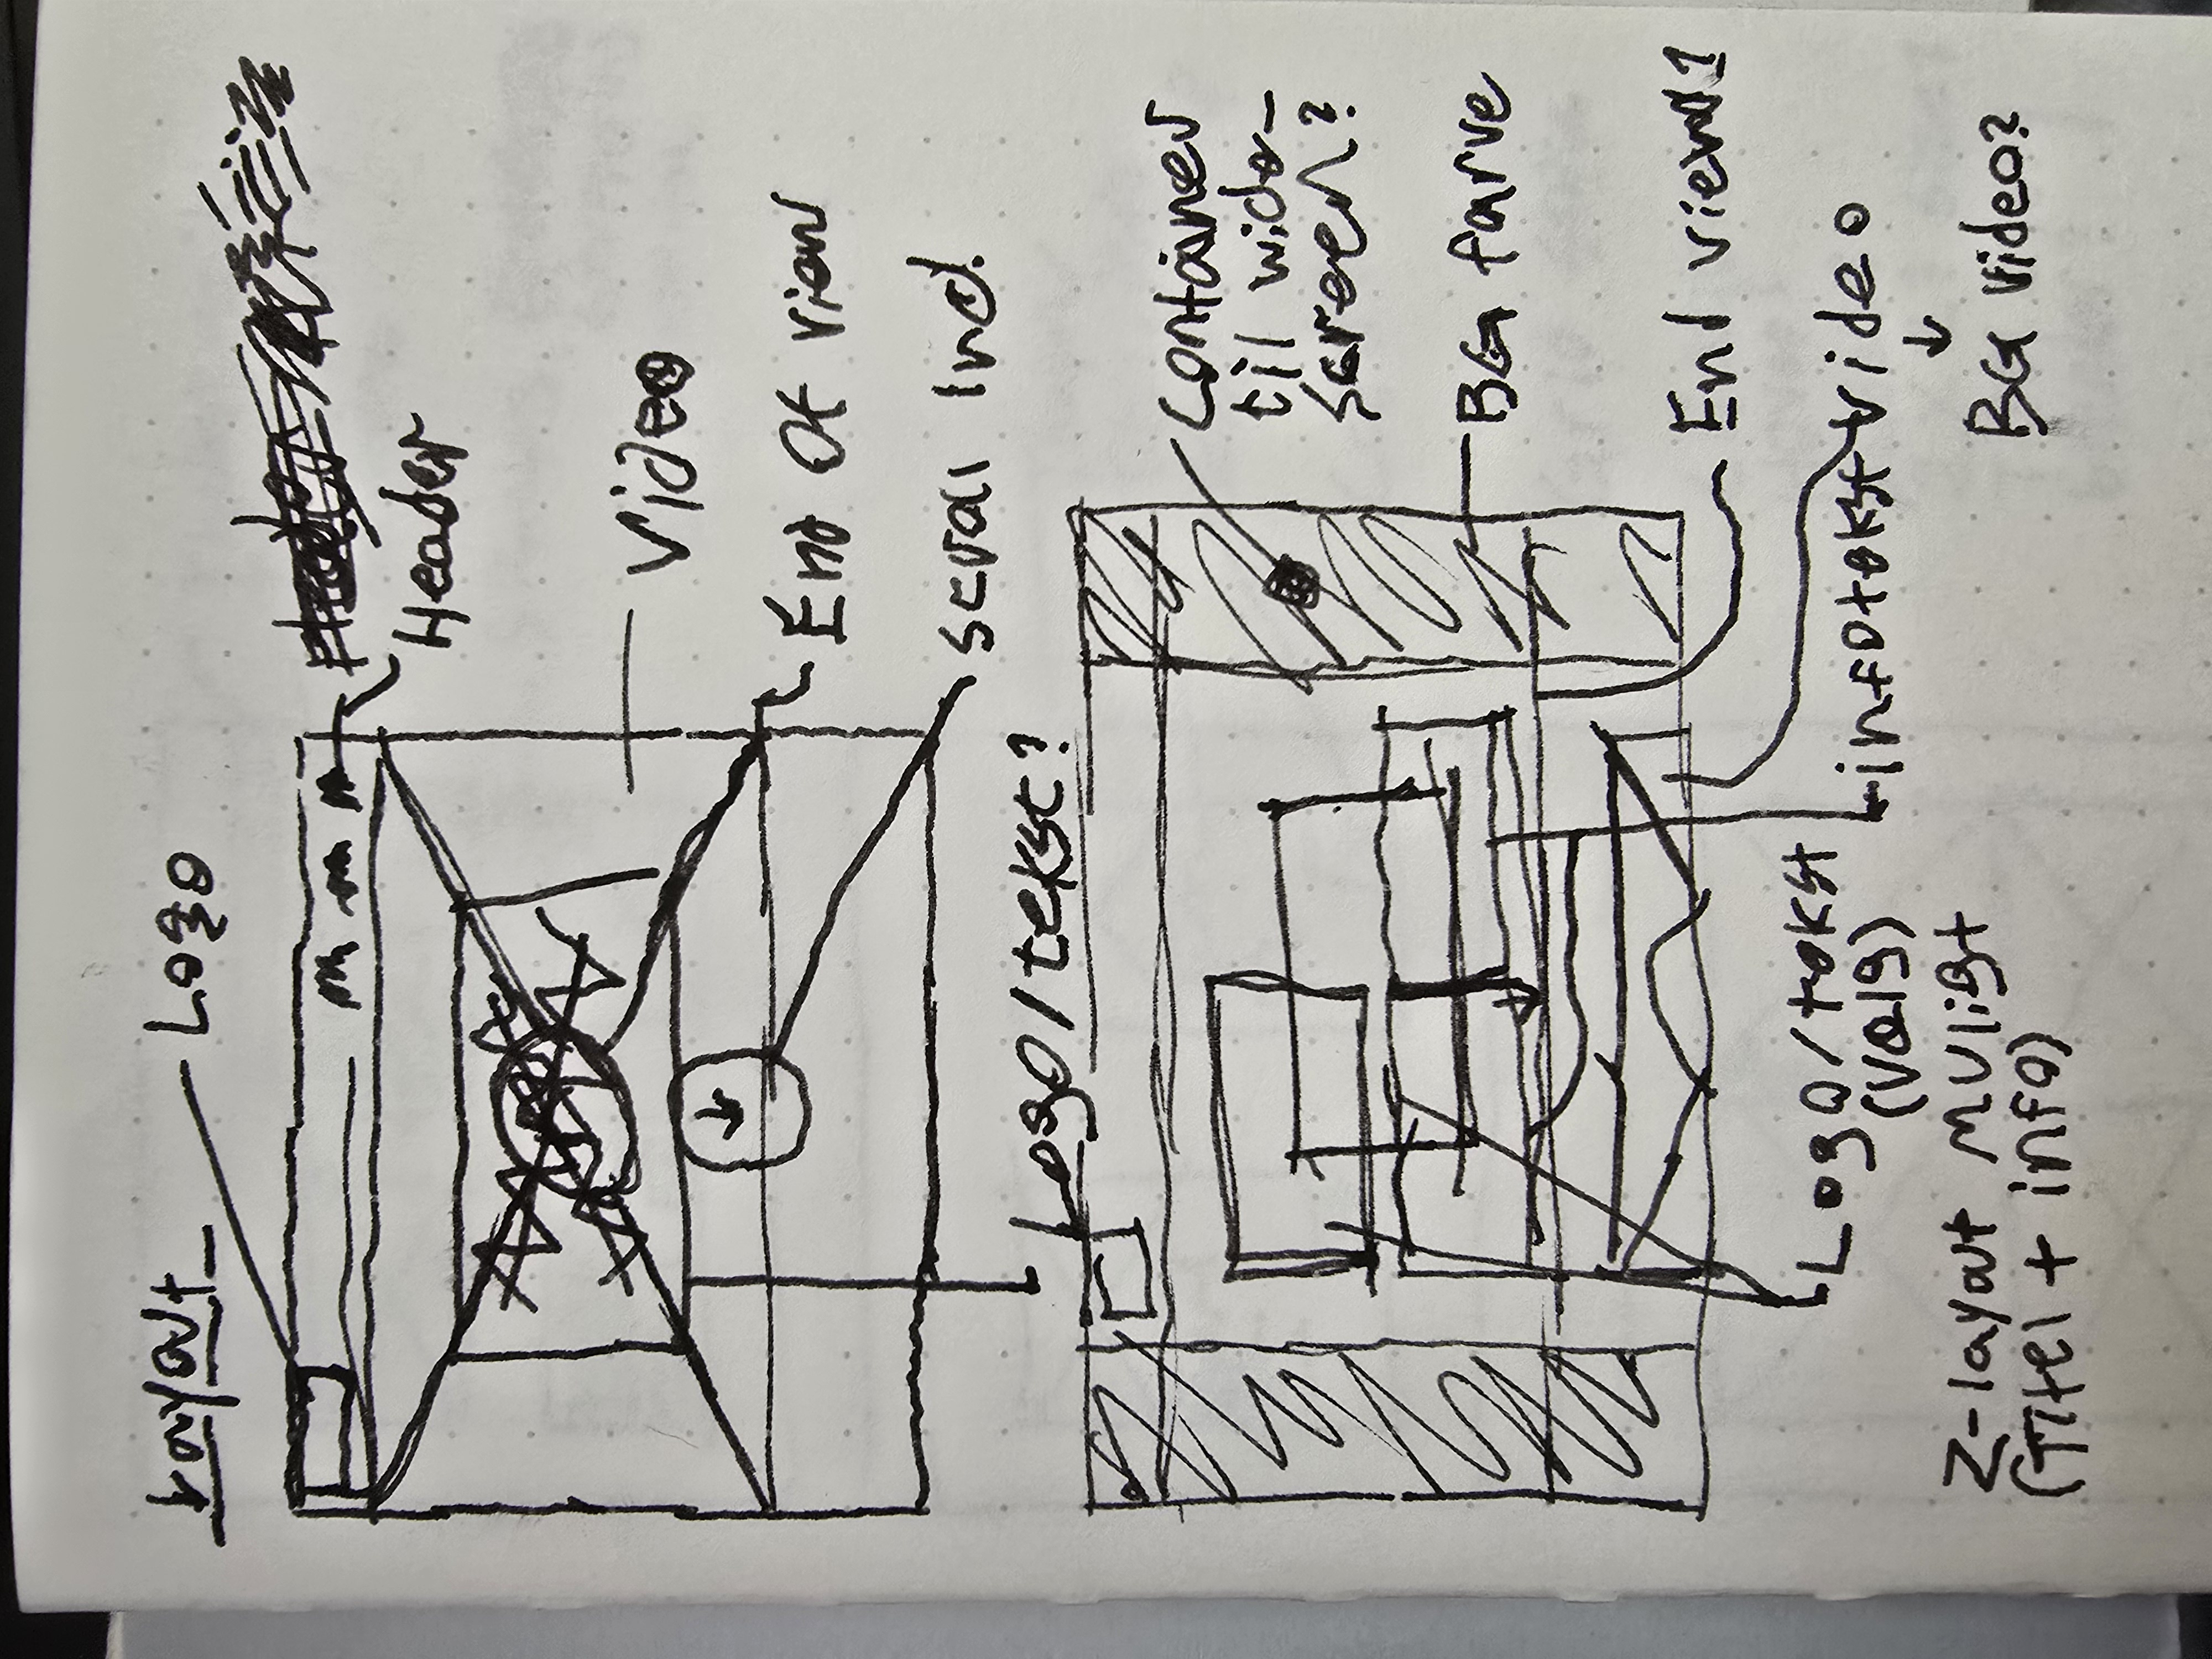 Layout
Logo
Header
Video
End Of view
scroll Ind.
Logo/tekst?
Container
til wide-
screen?
BG farve
End view1
video
↓
BG video?
infotekst
Logo/tekst
(Valg)
Z-layout muligt
(Titel + info)